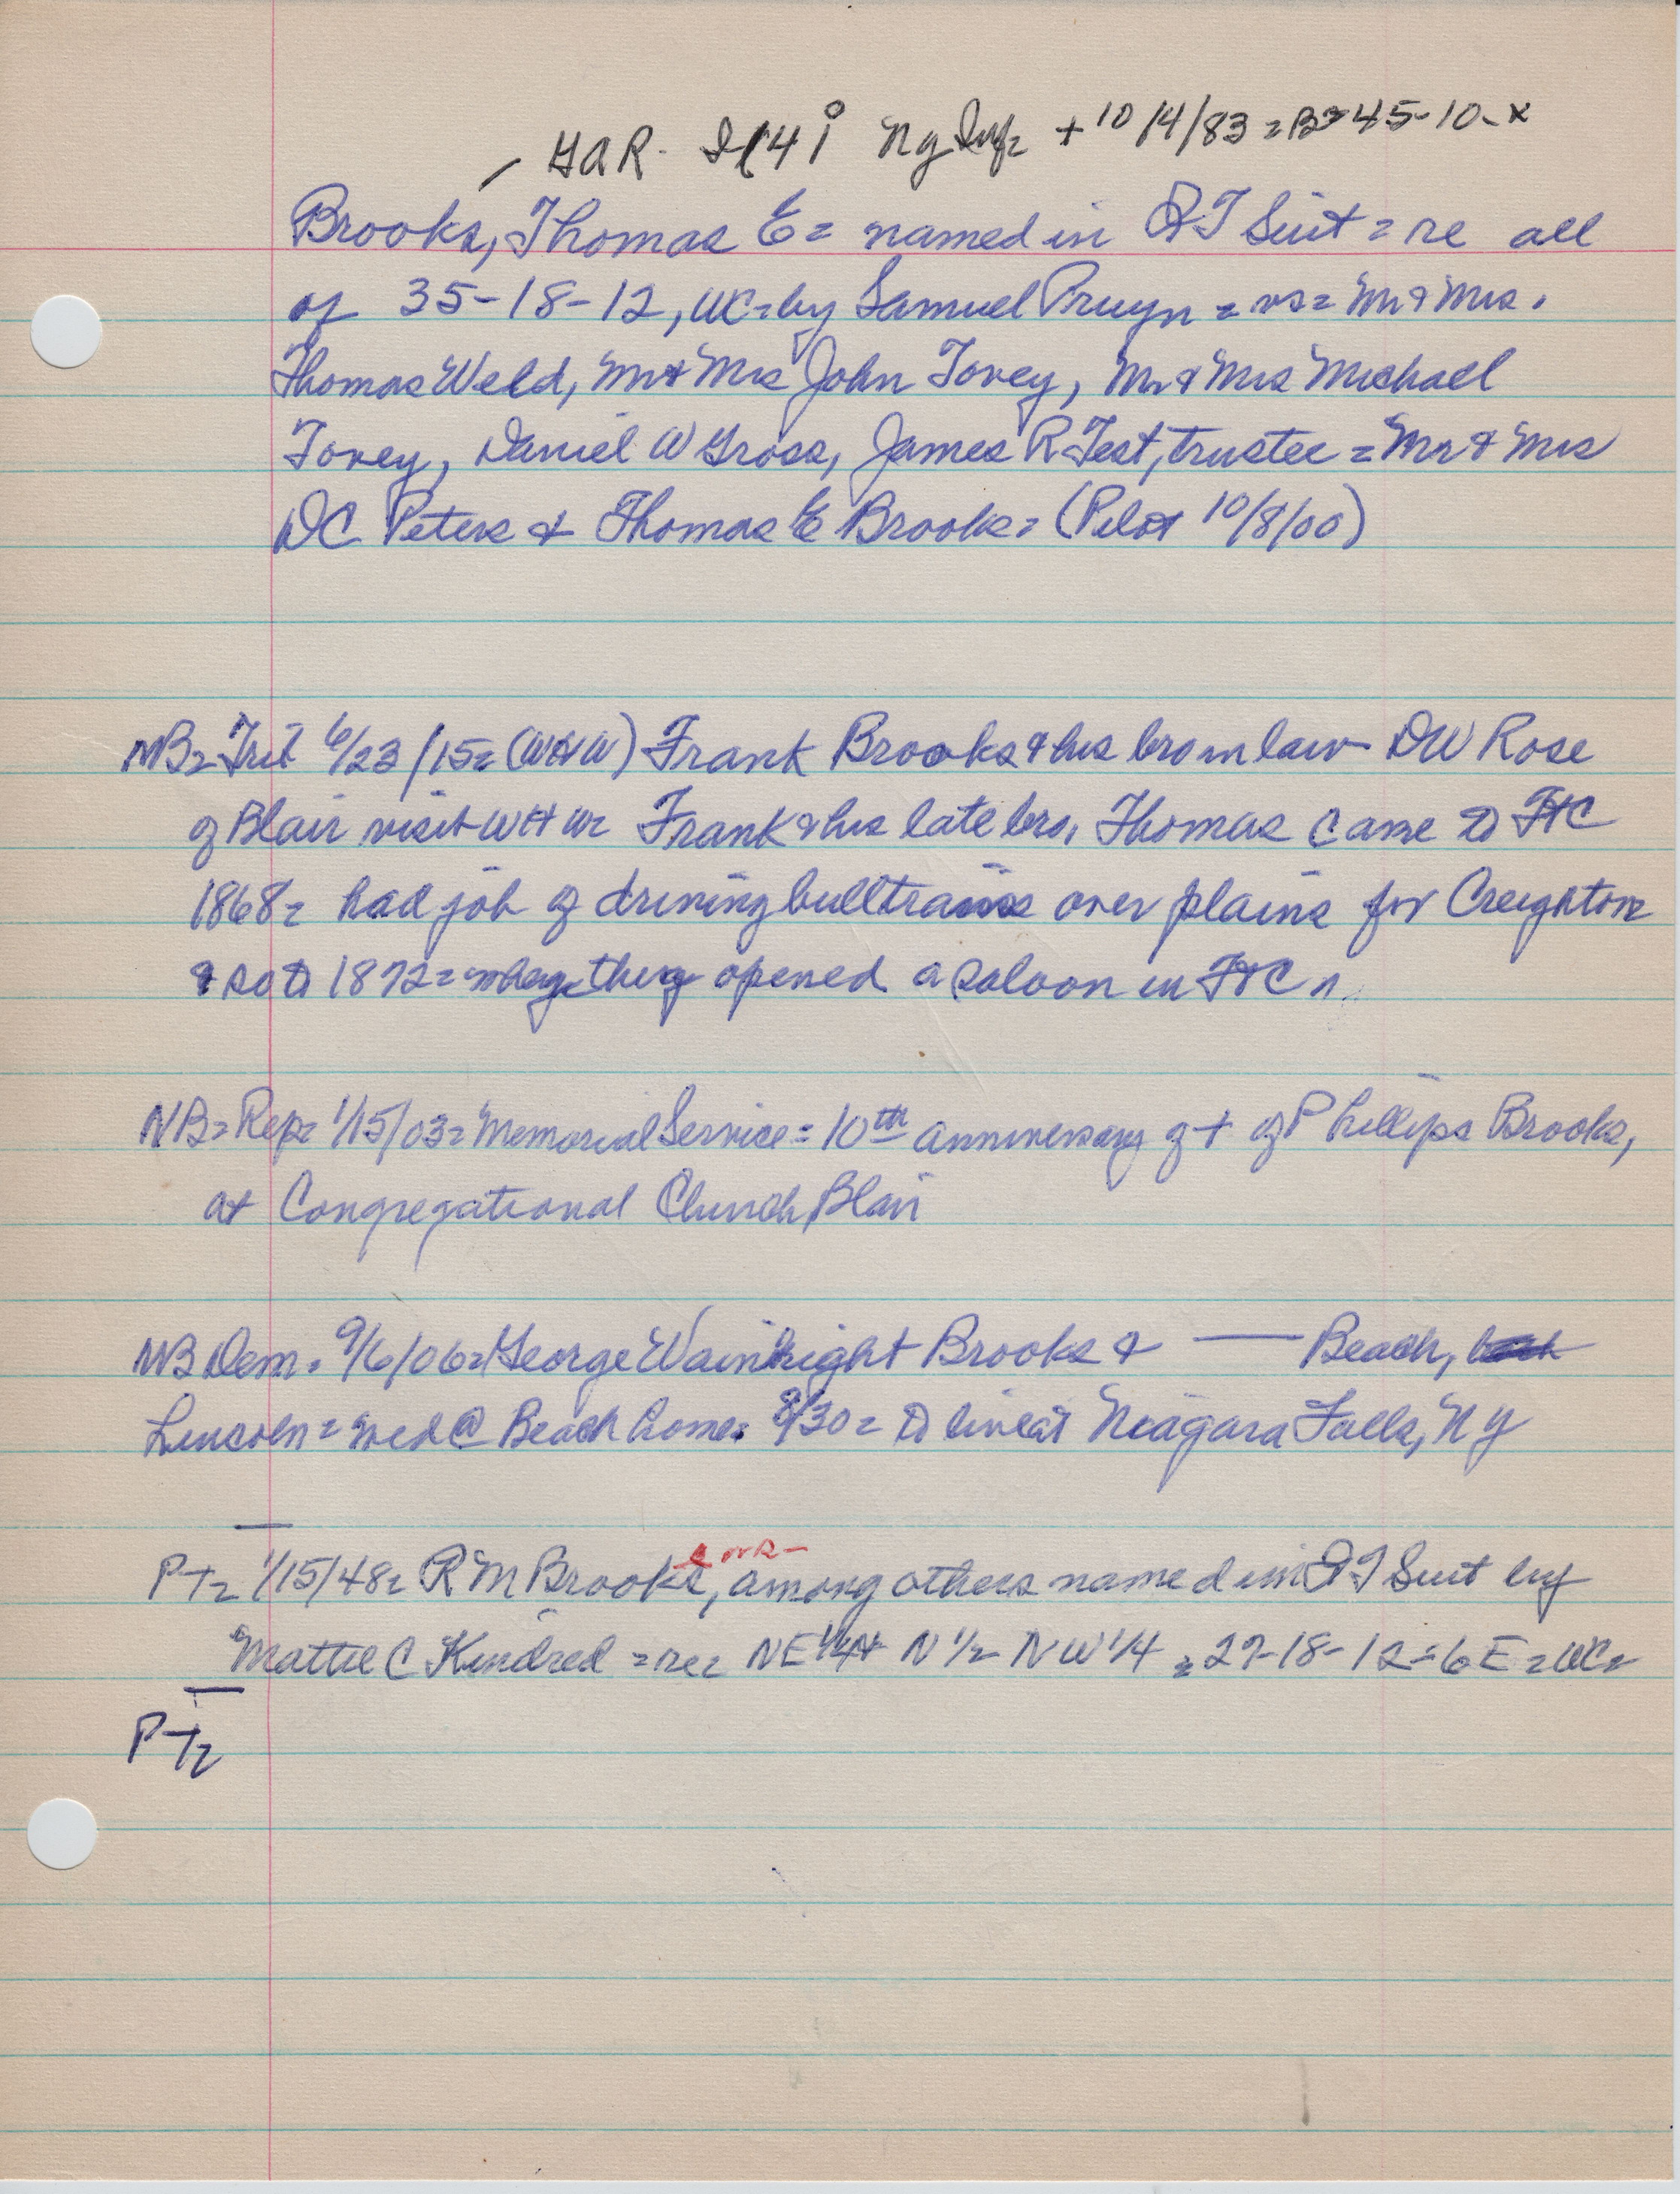 GAR. I 141 NY Inf = + 10/4/83 = B = 45-10-x
Brooks, Thomas E = named in QT Suit = re all
of 35-18-12, WC = by Samuel Pruyn = vs = Mr & Mrs.
Thomas Weld, Mr & Mrs John Tovey, Mr & Mrs Michael
Tovey, Daniel W Gross, James R Test, trustee = Mr & Mrs
DC Peters & Thomas E Brooks = (Pilot 10/8/00)
NB = Trib 6/23/15 = (WHW) Frank Brooks & his bro in law DW Rose
of Blair visit WHW = Frank & his late bro, Thomas came to FtC
1868 = had job of driving bulltrains over plains for Creighton
& so to 1872 = they opened a saloon in FtC
NB = Rep = 1/15/03 = Memorial Service = 10th anniversary of + of Phillips Brooks,
at Congregational Church, Blair
NB Dem = 9/6/06 = George Wainwright Brooks & —— Beach,
Lincoln = wed @ Beach home = 8/30 = to live at Niagara Falls, NY
PT = 1/15/48 = R M Brooks, among others named in QT Suit by
Mattie C Kindred = re = NE 1/4 & N 1/2 NW 1/4 = 27-18-12 = 6E = WC =
PT =